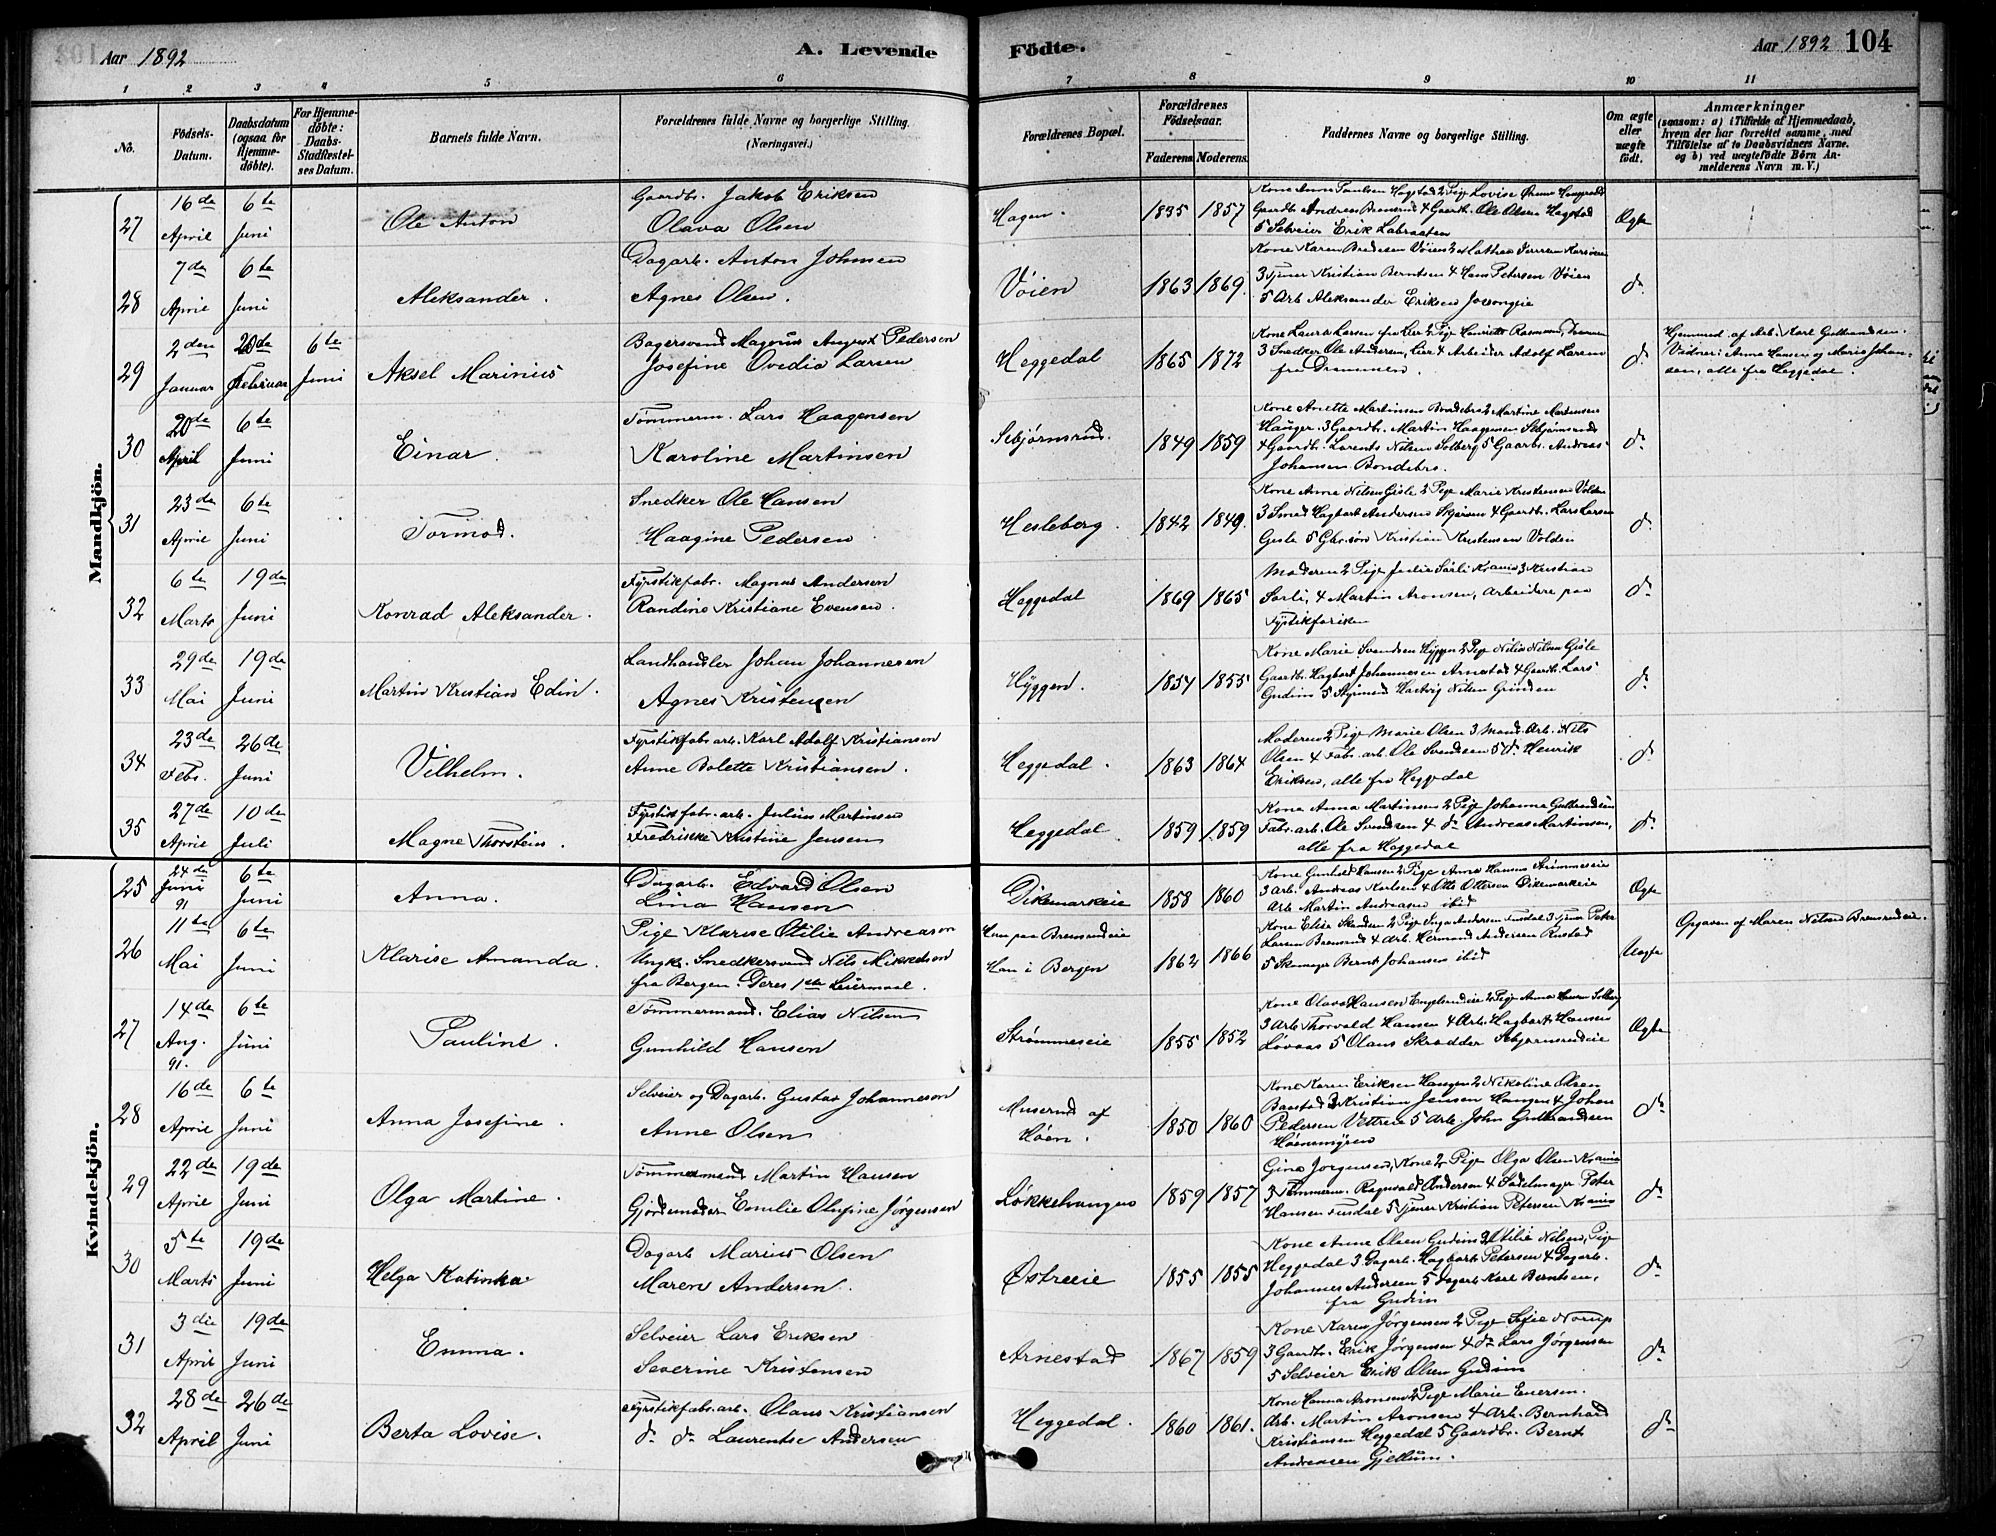 Aar 1892 A. Levende Födte. Aar 1892 104
1 2 3 4 5 6 7 8 9 10 11
No.
Födsels-Datum.
Daabsdatum (ogsaa for Hjemme-döbte).
For Hjemme-döbte: Daabs-Stadfæstel-ses Datum.
Barnets fulde Navn.
Forældrenes fulde Navne og borgerlige Stilling. (Næringsvei.)
Forældrenes Bopæl.
Forældrenes Födselsaar.
Faderens Moderens
Faddernes Navne og borgerlige Stilling.
Om ægte eller uægte født.
Anmærkninger
(saasom: a) i Tilfælde af Hjemmedaab,
hvem der har forrettet samme, med
Tilföielse af to Daabsvidners Navne.
og b) ved uægtefödte Börn An-
melderens Navn m.V.)
Mandkjön.
27 16de April 6te Juni Ole Anton
Gaardbr. Jakob Eriksen
Olava Olsen
Hagen. 1835 1857
Gaardbr. Andreas Bremsrud 4 Gaardb. Ole Olsen Hogstad
5 Selveier Erik Labraaten
Ægte
28 7de April 6te Juni Aleksander.
Dagarb. Anton Johnsen
Agnes Olsen.
Vöien 1863 1869.
3 Tjener Kristian Berntsen 4 Hans Petersen Vöien
5 Arb Aleksander Eriksen
d.
29 2den Januar 20de Februar 6te Juni Aksel Marinius
Bagersvend Magnus August Pedersen
Josefine Ovedia Larsen
Heggedal 1865 1872
Kone Laura Larsen fra Lier 2 Pige
3 Snedker Ole Andersen, Lier 4 Arbeider Adolf Larsen
fra Drammen.
d.
Hjemmed af Arb. Karl Gulbrandsen.
Vidner: Anna Hansen og Marie Johan-
sen, alle fra Heggedal.
30 20de April 6te Juni Einar.
Tömmerm. Lars Haagensen
Karoline Martinsen
Sebjörnsrud. 1849 1859
Kone Anette Martinsen Bondebro 2 Martine Martensen
Hauger. 3 Gaardb. Martin Haagensen Sebjörnsrud
4 Gaardb. Lorents Nilsen Solberg 5 Gaarb. Andreas
Johansen Bondebro.
d.
31 23de April 6te Juni Tormod.
Snedker Ole Hansen
Haagine Pedersen
Hesleberg. 1842 1849.
Kone Anne Nilsen Gisle 2 Pige Marie Kristensen Volden
3 Smed Hagbart Andersen 4 Gaardb. Lars Larsen
Gisle 5 Gbr.sön Kristian Kristensen Volden
d.
32 6te Marts 19de Juni Konrad Aleksander.
Fyrstikfabr. Magnus Andersen
Randine Kristiane Evensen.
Heggedal 1869 1865
Moderen 2 Pige Julie Sörli Krania 3 Kristian
Sorli, 4 Martin Aronsen, arbeidere paa
Fyrstikfariken
d.
33 29de Mai 19de Juni Martin Kristian Edin.
Landhandler Johan Johannesen
Agnes Kristensen
Hyggen. 1854 1855
Kone Marie Svendsen Hyggen 2 Pige Nilia Nilsen Gisle
Gaardb. Hagbart Johannesen Arnestad 4 Gaardb. Lars
Gudim 5 Styrmand Hartvig Nilsen Grinden
d.
34 23de Febr. 26de Juni Vilhelm.
Fyrstikfabr.arb. Karl Adolf Kristiansen
Anne Bolette Kristiansen.
Heggedal. 1863 1864
Moderen 2 Pige Marie Olsen 3 Mand Arb. Nils
Olsen 4 Fabr. arb. Ole Svendsen 5 d. Henrik
Eriksen, alle fra Heggedal
d.
35 27de April 10de Juli Magne Thorstein.
Fyrstikfabr. arb. Julius Martinsen
Fredrikke Kristine Jensen
Heggedal. 1859 1859
Kone Anna Martinsen 2 Pige Johanna Gulbrandsen
Fabr. arb. Ole Svendsen 4 d. Andreas Martinsen,
alle fra Heggedal
d.
Kvindekjön.
25 24de Juni 91 6te Juni Anna.
Dagarb. Edvard Olsen
Lina Hansen
Dikemarkeie 1858 1860
Kone Gunhild Hansen 2 Pige Anna Hansen Strömmeseie
3 Arb. Andreas Karlsen 4 Otto Ottersen Dikemarkeie
Arb Martin Andreasen ibid
Ægte
26 11te Mai 6te Juni Klarise Amanda.
Pige Klarise Otilie Andreasen
Ungk. Snedkersvend Nils Mikkelsen
fra Bergen. Deres 1ste Leiermaal.
Hun paa Bremsrudeie
Han i Bergen
1862 1866
Kone Elise 2 Pige Inga Andersen Fusdal 3 Tjener Peter
Larsen Bremsrud 4 Arb. Hermand Andersen Rustad
5 Skomager Bernt Johansen ibid
Uægte
Opgaven af Maren Nilsen Bremsrudeie.
27 14de Aug. 91. 6te Juni Pauline.
Tömmermand. Elias Nilsen
Gunhild Hansen
Strömmeseie 1855 1852
Kone Olava Hansen Engelsrudeie 2 Pige Anna Hansen Solberg
3 Arb Thorvald Hansen 4 Arb. Hagbart Hansen
Lövaas 5 Olaus Skrædder Sebjörnsrudeie
Ægte
28 16de April 6te Juni Anna Josefine.
Selveier og Dagarb. Gustav Johannesen
Anne Olsen
Muserud af Höen. 1850 1860
Kone Karen Eriksen Haugen 2 Nikoline Olsen
Baastad 3 Kristian Jensen Haugen 4 Johan
Pedersen Vettre 5 Arb John Gulbrandsen
Höensmyren
d.
29 22de April 19de Juni Olga Martine.
Tömmermand Martin Hansen
Gjordemoder Emilie Olufine Jörgensen
Lökkehaugen 1859 1857
Gina Jorgensen, Kone 2 Pige Olga Olsen Krania
3 Tömmerm. Ragnvald Andersen 4 Sadelmager Peter
Hansen Fusdal 5 Tjener Kristian Petersen Krania
d.
30 5te Marts 19de Juni Helga Katinka
Dagarb Marius Olsen
Maren Andersen.
Østreeie 1855 1855
Kone Anne Olsen Gudim 2 Otilie Nilsen, Pige
Heggedal 3 Dagarb. Hagbart Petersen 4 Dagarb.
Johannes Andersen 5 Dagarb Karl Berntsen,
fra Gudim
d.
31 3die April 19de Juni Emma.
Selveier Lars Eriksen
Severine Kristensen
Arnestad 1867 1859
Kone Karen Jörgensen 2 Pige Sofie Norup
3 Gaardb. Erik Jörgensen 4 d. Lars Jörgensen
5 Selveier Erik Olsen Gudim
d.
32 28de April 26de Juni Berta Lovise.
Fyrstikfabr.arb. Olaus Kristiansen
d. d. Laurentse Andersen
Heggedal. 1860 1861.
Kone Hanna Aronsen 2 Pige Marie Enersen.
Arb. Martin Aronsen 4 Arb. Bernhard
Kristiansen Heggedal 5 Gaardbr. Bernt
Andreasen Gjellum.
d.